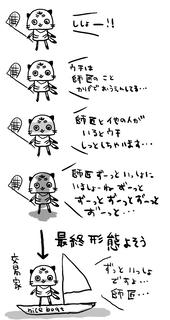 ししょー!!
ウチは
師匠のこと
かげでおうえんしてる…
師匠と他の人が
いるとウチ
しっとしちゃいます…
師匠ずーっといっしょに
いましょーね ずーっと
ずーっとずーっとずーっと
ずーっと…
最終形態よそう
交易家
ずっといっしょ
ですよ…
師匠…
nice boat